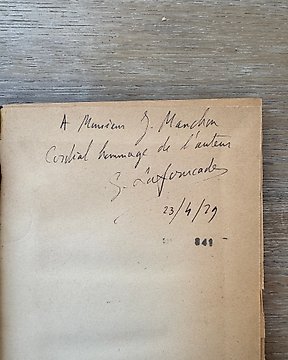 A Monsieur G. Manchon
Cordial hommage de l'auteur
G. Lafourcade
23/4/29
841